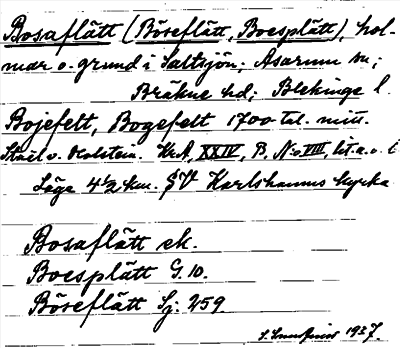 Bosaflätt (Böreflätt, Boesplätt), hol-
mar o. grund i Saltsjön; Asarum sn;
Bräkne hd; Blekinge l.
Bojefelt, Bogefelt 1700 tal. mitt.
Stael v. Holstein. KrA, XXIV, B, No VIII, lit. a. o. c
Läge 4½ km. SV Karlshamns kyrka
Bosaflätt ek.
Boesplätt G. 10.
Böreflätt Sj: 259
1937.